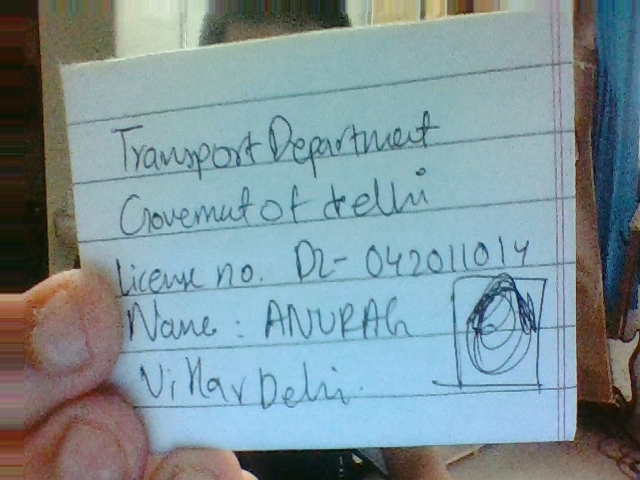 Transport Department
Governmut of delhi
License no. DL-042011014
Name: ANURAG
Delhi